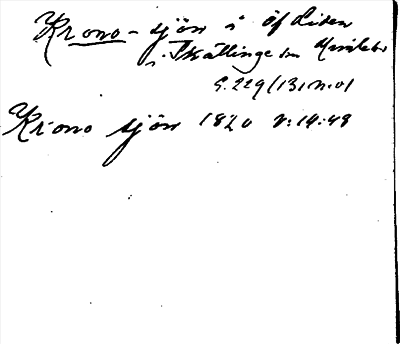 Krono-sjön å öf Liden
i Skällinge sn Himle hd
S. 229 (131 n. o)
Krono sjön 1820 V: 14: 48